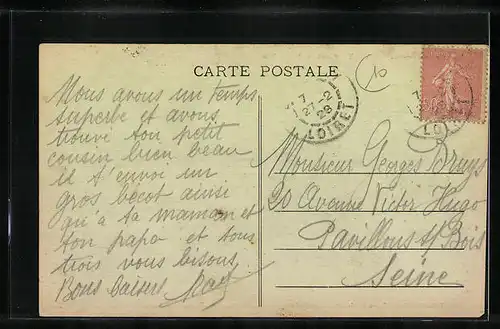 CARTE POSTALE
Nous avons un temps
superbe et avons
trouvé ton petit
cousin bien beau
il t'envoi un
gros bécot ainsi
qu'à ta maman et
ton papa et tous
trois vous bisons.
Bons baisers
7
27-2
29
LOIRET
Monsieur Georges Bruys
20 Avenue Victor Hugo
Pavillons s/ Bois
Seine